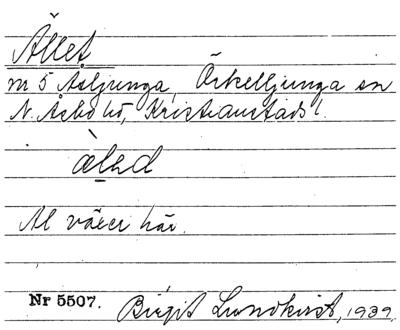 Ållet
nr 5 Åsljunga, Örkelljunga sn
N. Åsbo hd, Kristianstads l.
Al växer här.
Nr 5507. Birgit Lundkvist, 1939.